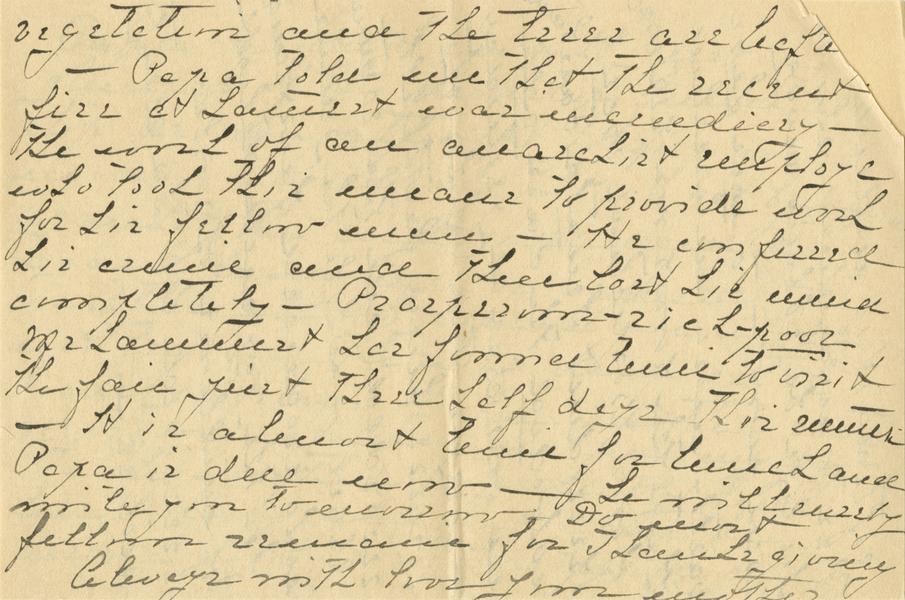 vegetation and the trees are
— Papa told me that the recent
fire at Lammert was incendiary —
the work of an anarchist employe
who took this means to provide work
for his fellow men — He confessed
his crime and then lost his mind
completely — Prosperous-rich-poor
Mr Lammert has found time to visit
the fair just three half days this summer
— It is almost time for lunch and
Papa is due now — he will surely
write you tomorrow. Do most
fellows remain for Thanksgiving
Always with love your mother